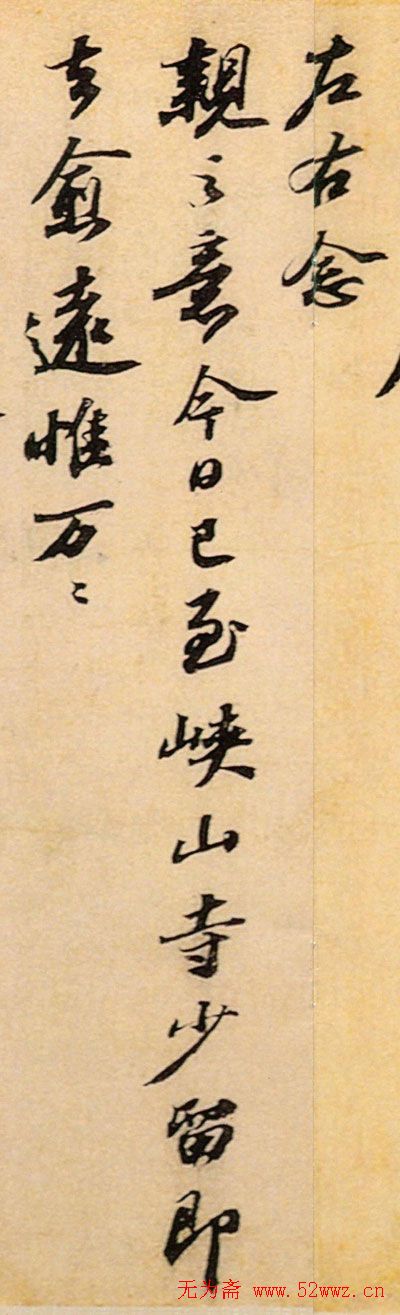 左右念
親之意今日已至峽山寺少留即
去愈遠惟万〻
无为斋 www.52wwz.cn